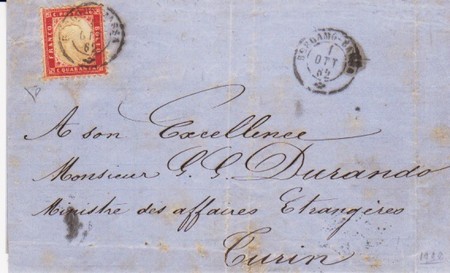 FRANCO BOLLO
C. QUARANTA
BERGAMO-BASSA
1
OTT
A son Excellence
Monsieur G. G. Durando
Ministre des affaires Etrangères
Turin